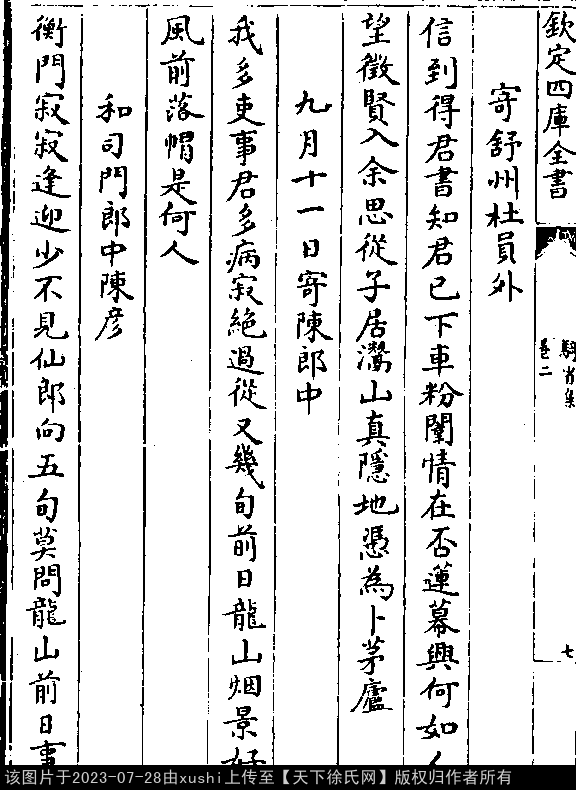 欽定四庫全書
騎省集
卷二
七
寄舒州杜員外
信到得君書知君已下車粉闈情在否蓮幕興何如人
望徵賢入余思從子居灊山真隱地憑為卜茅廬
九月十一日寄陳郎中
我多吏事君多病寂絶過從又幾旬前日龍山烟景好
風前落帽是何人
和司門郎中陳彦
衡門寂寂逢迎少不見仙郎向五旬莫問龍山前日事
该图片于2023-07-28由xushi上传至【天下徐氏网】版权归作者所有